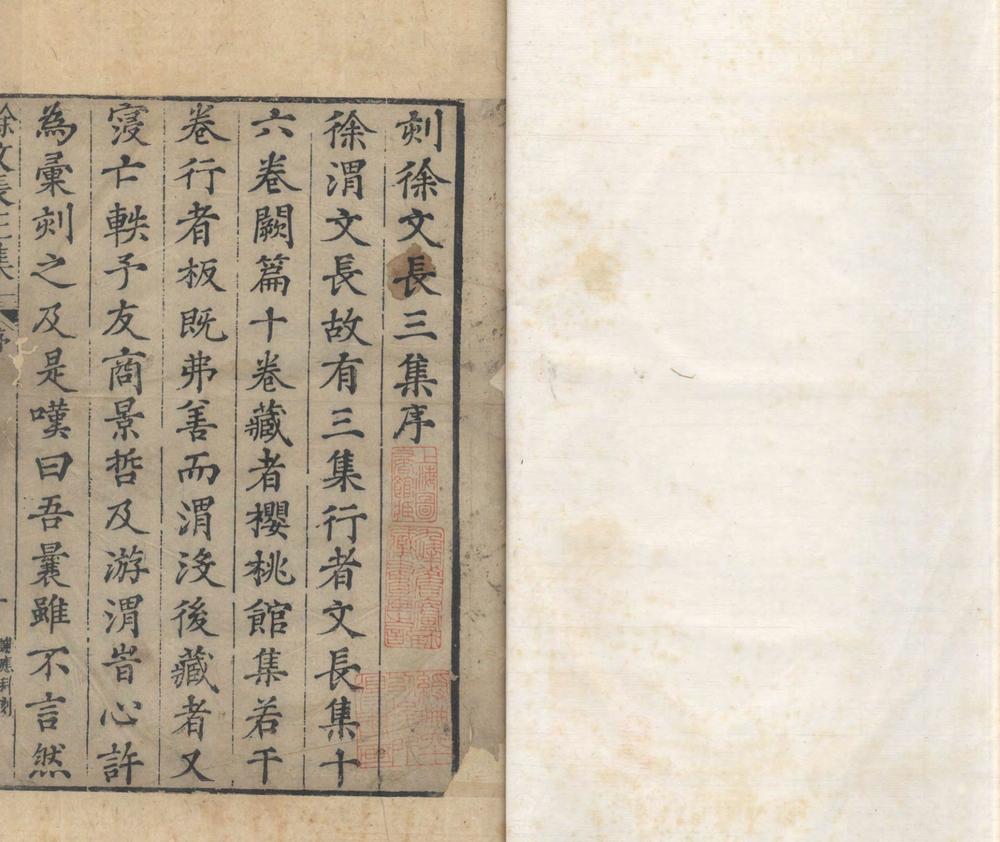 刻徐文長三集序
上海圖書館藏
徐渭文長故有三集行者文長集十
六卷闕篇十卷藏者櫻桃館集若干
卷行者板既弗善而渭沒後藏者又
寖亡軼予友商景哲及游渭旹心許
為彙刻之及是嘆曰吾曩雖不言然
徐文長三集
序